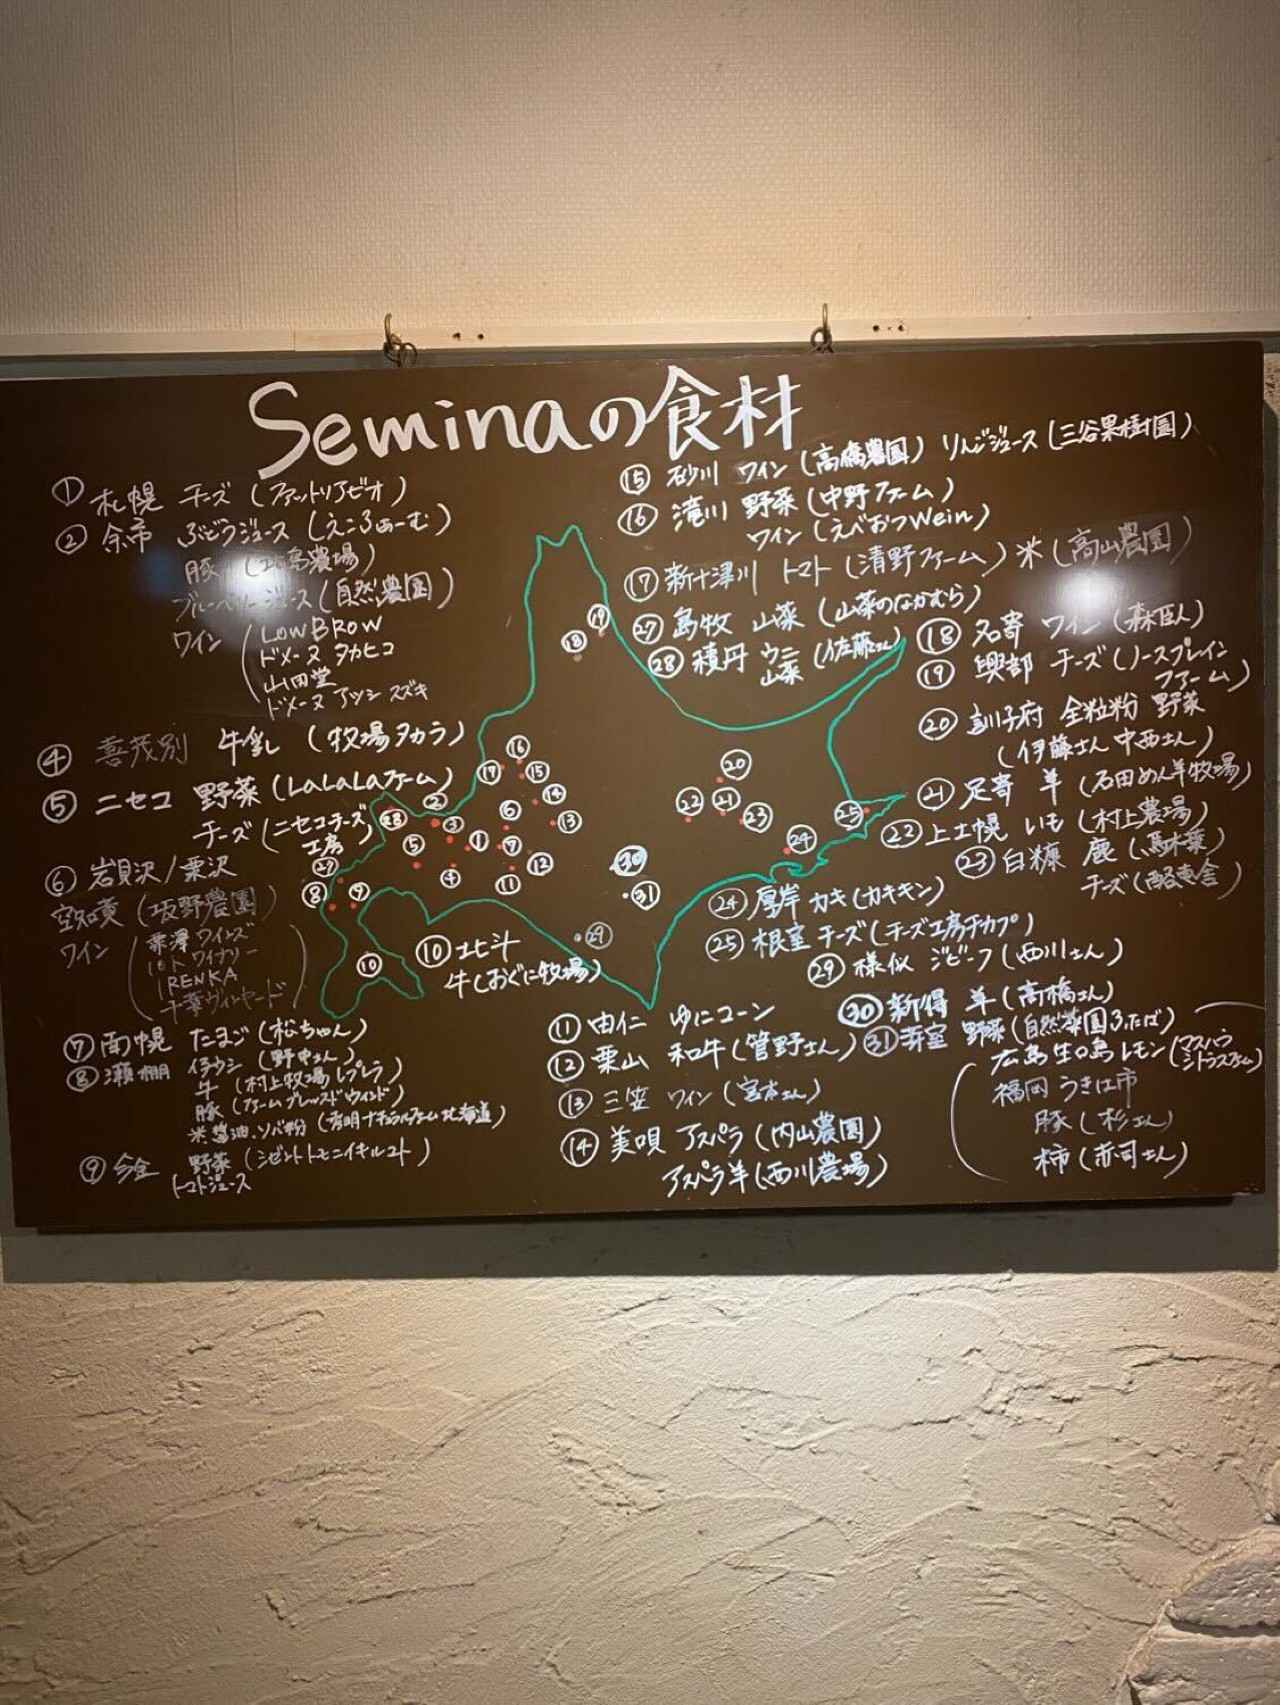 Seminaの食材
① 札幌 チーズ (ファットリアビオ)
② 余市 ぶどうジュース (えこふぁーむ)
豚 (島農場)
ブルーベリージュース (自然農園)
ワイン (LOWBROW
ドメーヌ タカヒコ
山田堂
ドメーヌ アツシ スズキ
④ 喜茂別 牛乳 (牧場タカラ)
⑤ ニセコ 野菜 (LaLaLaファーム)
チーズ (ニセコチーズ工房)
⑥ 岩見沢/栗沢
空知黄 (坂野農園)
ワイン (栗澤ワインズ
10Rワイナリー
IRENKA
千葉ヴィンヤード)
⑦ 南幌 たまご (松ちゃん)
⑧ 瀬棚 イチウシ (野中さん)
牛 (村上牧場 レプレラ)
豚 (ファームブレッスドウィンド)
米 醤油 ソバ粉 (秀明ナチュラルファーム北海道)
⑨ 今金 野菜 (シゼントトモニイキルコト)
トマトジュース
⑩ 北斗
牛 (おぐに牧場)
⑪ 由仁 ゆにコーン
⑫ 栗山 和牛 (菅野さん)
⑬ 三笠 ワイン (宮本さん)
⑭ 美唄 アスパラ (内山農園)
アスパラ羊 (西川農場)
⑮ 砂川 ワイン (高橋農園) りんごジュース (三谷果樹園)
⑯ 滝川 野菜 (中野ファーム)
ワイン (えべおつWein)
⑰ 新十津川 トマト (清野ファーム) 米 (高山農園)
㉗ 島牧 山菜 (山菜のなかむら)
㉘ 積丹 ウニ 山菜 (佐藤さん)
⑱ 名寄 ワイン (森臣人)
⑲ 興部 チーズ (ノースプレインファーム)
⑳ 訓子府 全粒粉 野菜
(伊藤さん 中西さん)
㉑ 足寄 羊 (石田めん羊牧場)
㉒ 上士幌 いも (村上農場)
㉓ 白糠 鹿 (馬木葉)
チーズ (酪恵舎)
㉔ 厚岸 カキ (カキキン)
㉕ 根室 チーズ (チーズ工房チカプ)
㉙ 様似 ジビーフ (西川さん)
㉚ 新得 羊 (高橋さん)
㉛ 芽室 野菜 (自然菜園ふたば)
広島生口島 レモン (マスハウシトラスファーム)
福岡 うきは市
豚 (杉さん)
柿 (赤司さん)
⑲
⑱
⑯
⑰ ⑮
② ⑥ ⑭
㉘ ③ ① ⑦ ⑬
⑤ ⑫
㉗ ④ ⑪
⑧ ⑨
⑩
⑳
㉒ ㉑ ㉓
㉔ ㉕
㉚
㉛
㉙